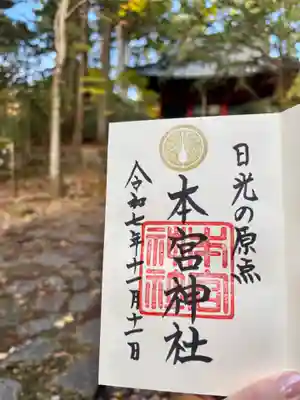 日光の原点
本宮神社
令和七年十一月十一日